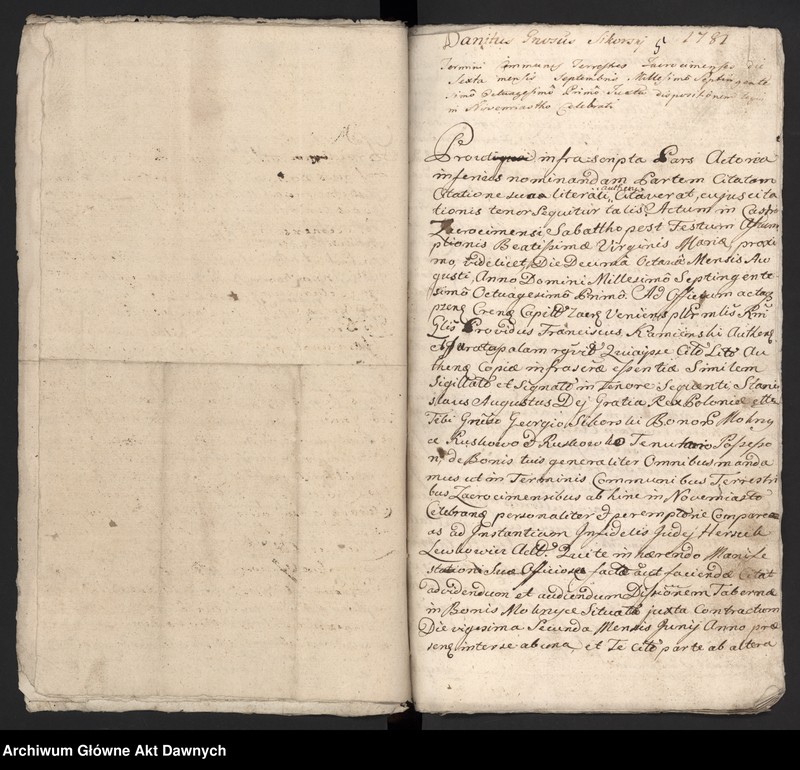 Danitus Gnosus Sikorsij 5 1781
Termini Communes Terrestres Zacrocimenses die
Sexta mensis Septembris Millesimo Septingente
simo Octuagesimo Primo Juxta dispositionem
in Novemiastko Celebrati
infra scripta Pars Actorea
inferius nominandam Partem Citatam
Citatione sua literali authen Citaverat, cujus cita
tionis tenor Sequitur talis. Actum in Castro
Zacrocimensi Sabatho post Festum Assum
ptionis Beatissimæ Virginis Mariæ, proxi
mo, videlicet, Die Decima Octava Mensis Au
gusti, Anno Domini Millesimo Septingente
simo Octuagesimo Primo. Ad Officium actaq
Veniens
Providus Franciscus Kaminski Authen
Citõ Litõ Au
then Copiæ infrascræ essentiæ Similem
Sigillatõ et Signatõ in Tenore Sequenti, Stani
slaus Augustus Dej Gratia Rex Poloniæ etc
Tibi Gnõso Georgio Sikorski Bonorõ Mokrzy
ce Ruskowo Possesso
ri, de Bonis tuis generaliter Omnibus manda
mus ut in Terminis Communibus Terrestri
bus Zacrocimensibus ab hinc in Novemiasto
Celebrans personaliter et peremptorie Comparea
as ad Instantiam Infidelis Judej Herszek
Lewkowicz Act. Qui te inhærendo Manife
stationi Suæ Officiose factæ aut faciendæ Citat
ad videndum et audiendum Tabernæ
in Bonis Mokrzyce Situatæ juxta Contractum
Die vigesima Secunda Mensis Junij Anno præ
sen inter se ab una, et Te Citõ parte ab altera
Archiwum Główne Akt Dawnych